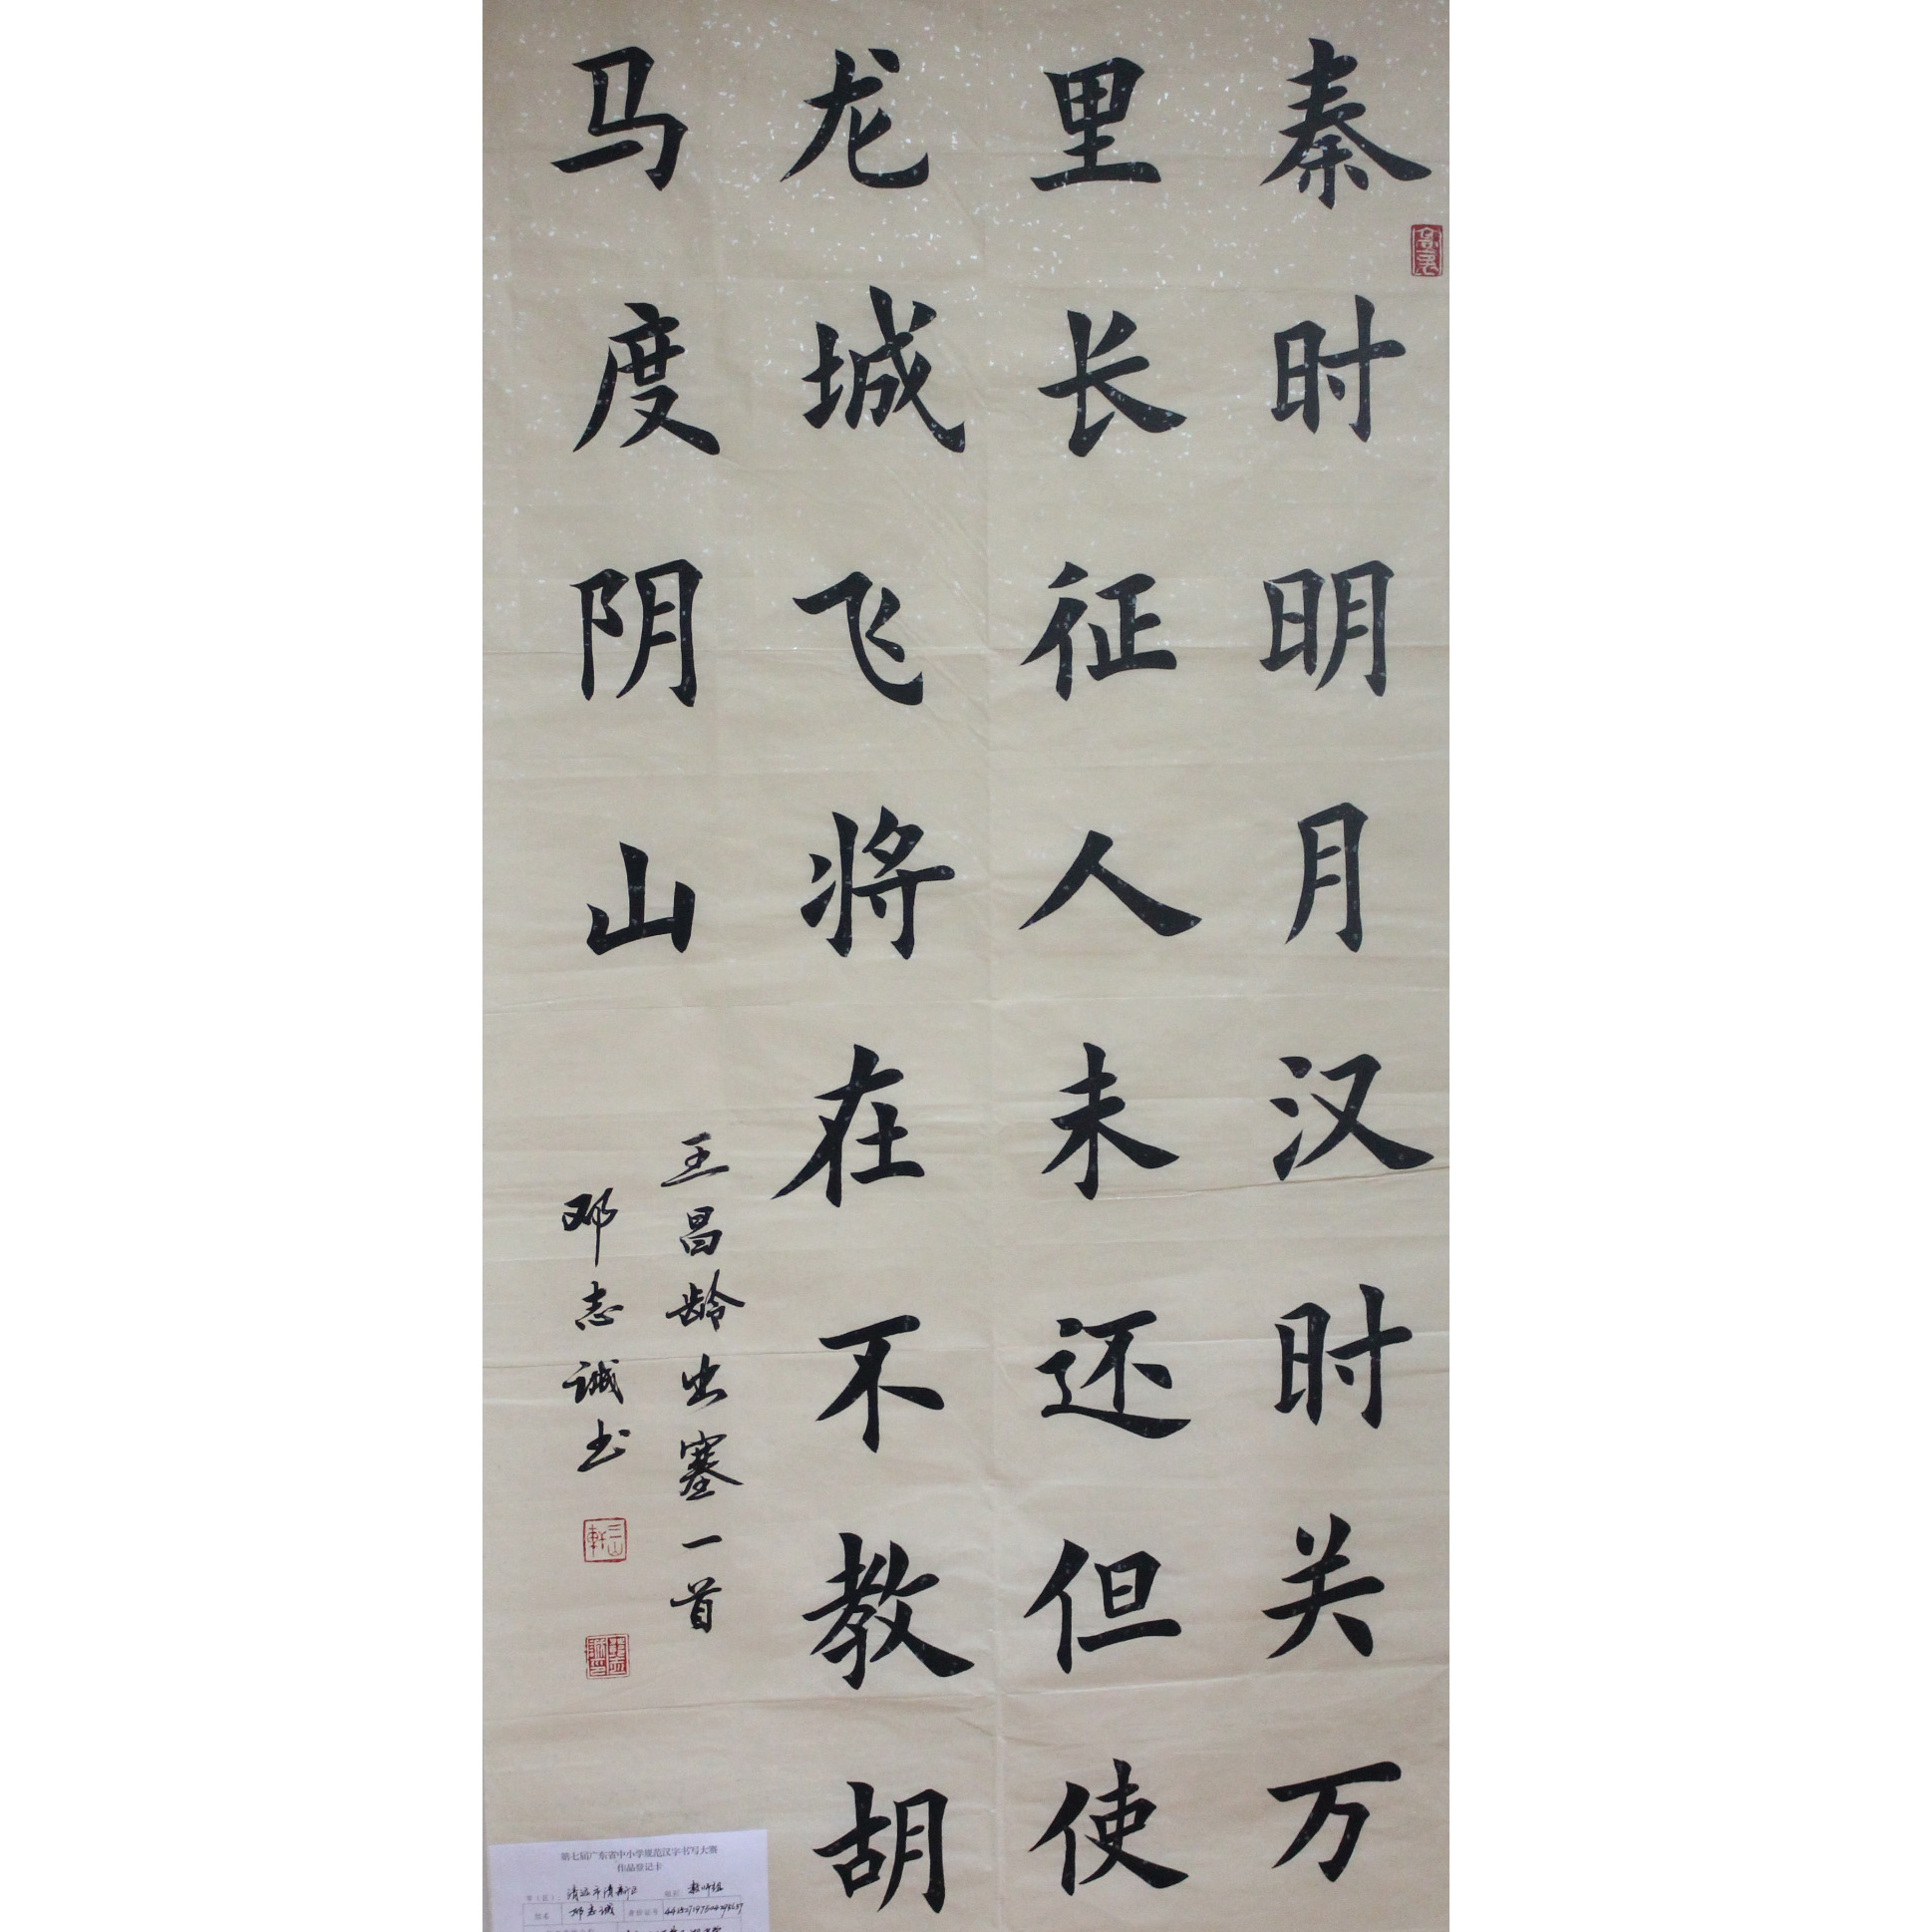 秦时明月汉时关万
里长征人未还但使
龙城飞将在不教胡
马度阴山
王昌龄出塞一首
邓志诚书
三山軒
第七届广东省中小学规范汉字书写大赛
作品登记卡
市（区）：清远市清新区 组别 教师组
姓名 邓志诚 身份证号